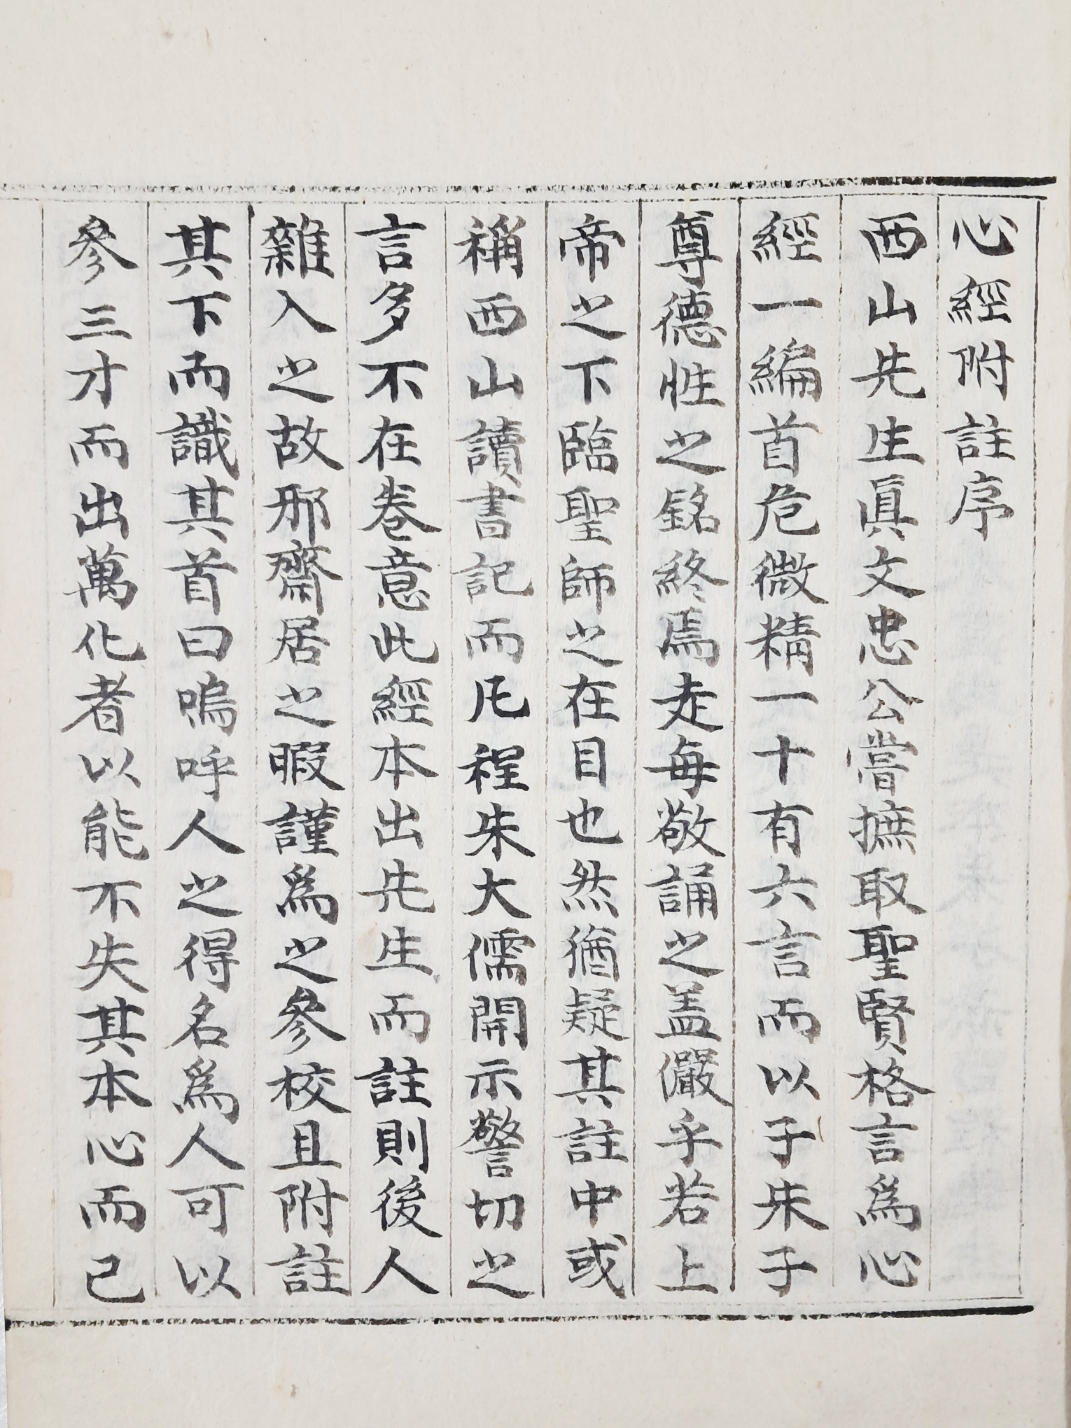 心經附註序
西山先生眞文忠公嘗摭取聖賢格言爲心
經一編首危微精一十有六言而以子朱子
尊德性之銘終焉走每敬誦之盖儼乎若上
帝之下臨聖師之在目也然猶疑其註中或
稱西山讀書記而凡程朱大儒開示警切之
言多不在卷意此經本出先生而註則後人
雜入之故邪齋居之暇謹爲之參校且附註
其下而識其首曰嗚呼人之得名爲人可以
參三才而出萬化者以能不失其本心而已